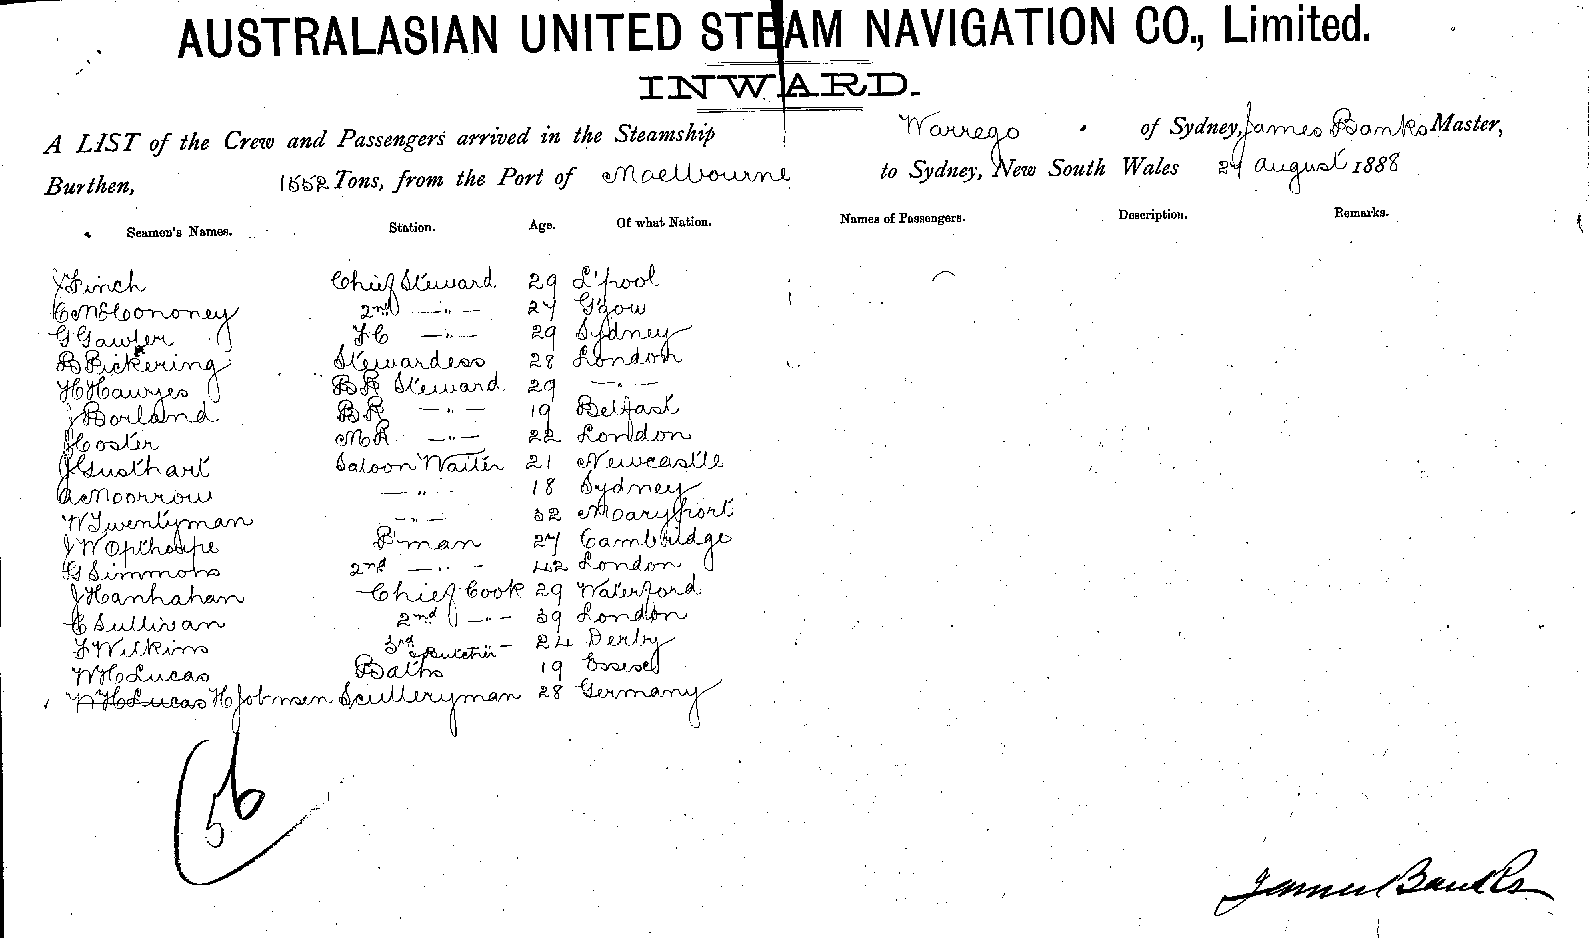 AUSTRALASIAN UNITED STEAM NAVIGATION CO., Limited.
INWARD.
A LIST of the Crew and Passengers arrived in the Steamship Warrego of Sydney, James Banks Master,
Burthen, 1552 Tons, from the Port of Maelbourne to Sydney, New South Wales 27 August 1888
Seamen's Names. Station. Age. Of what Nation. Names of Passengers. Description. Remarks.
J Finch Chief Steward 29 L'pool
C McCononey 2nd —"— 27 G'gow
G Gawler FC —"— 29 Sydney
B Pickering Stewardess 28 London
H Hawyes BR Steward 29 —"—
J Borland BR —"— 19 Belfast
J Coster MR —"— 22 London
J Gusthart Saloon Waiter 21 Newcastle
A Moorrow —"— 18 Sydney
W Twentyman —"— 32 Maryport
J W Opthorpe P'man 27 Cambridge
G Simmons 2nd —"— 42 London
J Hanhahan Chief Cook 29 Waterford
C Sullivan 2nd —"— 39 London
F Wilkins 3rd & Butcher — 24 Derby
W H Lucas Baths 19 Essex
W H Lucas H Jobmsen Sculleryman 28 Germany
56
James Banks